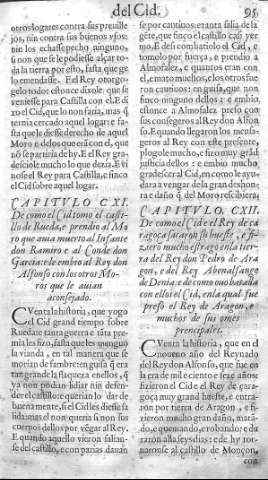 del Cid.
95
otros logares con sus pennilles
jos, nin contra sus buenos vsos:
nin los echasse pecho ninguno,
si non que se le pidiesse alçar to-
da la tierra por esto, fasta que ge
lo emendasse. E el Rey otorgo-
gelo todo: estonce dixole que se
viniesse para Castilla con el. E di
xo el Cid, que lo non faria, mas
ternia cercado aquel logar: fasta
que le diesse derecho de aquel
Moro e delos que era con el, que
no se partiria de hy. E el Rey gra-
desciole mucho lo que dezia. E vi
nose el Rey para Castilla, e finco
el Cid sobre aquel logar.
CAPITVLO CXI.
De como el Cid tomo el casti-
llo de Rueda, e prendio al Mo
ro que auia muerto al Infante
don Ramiro e al Conde don
Garcia: e le embio al Rey don
Alfonso con los otros Mo-
ros que le auian
aconsejado.
CVenta la historia, que yogo
el Cid grand tiempo sobre
Rueda: e tanta guerra e tata pre-
mia les fizo, fasta que les menguo
la vianda, en tal manera que se
morian de fambre: en guisa que era
tan grande la flaqueza enellos, que
ya non podian lidiar nin defen-
der el castillo: e querian lo dar de
buena mente, si el Cid les diesse sa
lida: mas el non queria si non sus
cuerpos dellos por vegar al Rey.
E quando aquello vieron falian-
se del castillo, e con panas dauan
se por catiuos: e tanta salia de la
gente, que finco el castillo casi yer
mo. E desi combatiolo el Cid, e
tomolo por fuerça, e prendio a
Almofalez, e quantos eran con
el, e mato muchos, e los otros fue
ron catiuos: en guisa, que non
finco ninguno dellos: e embio
estonce a Almofalez preso con
sus consegeros al Rey don Alfon
so. E quando llegaron los mensa-
geros al Rey con este presente,
plogole mucho, e fizo muy grád
justicia dellos: e embio mucho
gradescer al Cid, en como le ayu
dara a vengar de la gran deshon-
ra e daño que del Moro rescibiera.
CAPITVLO. CXII.
De como el Cid e el Rey de ca
ragoça sacaron su hueste, e fi-
zero mucho estrago en la tierra
del Rey don Pedro de Ara-
gon, e del Rey Abenalfange
de Denia: e de como ouo batalla
con ellos el Cid, en la qual fue
preso el Rey de Aragon, e
muchos de sus omes
prencipales.
CVenta la historia, que en el
noueno año del Reynado
del Rey don Alfonso, que fue en
la era de mil e ciento e años
fizieron el Cid e el Rey de çara-
goça muy grand hueste, e entra-
ron por tierra de Aragon, e fi-
zieron mucho gran daño, matá-
do, e quemando, e robando: e du
raron alla seys dias: e de hy tor-
naronse al castillo de Monçon,
con